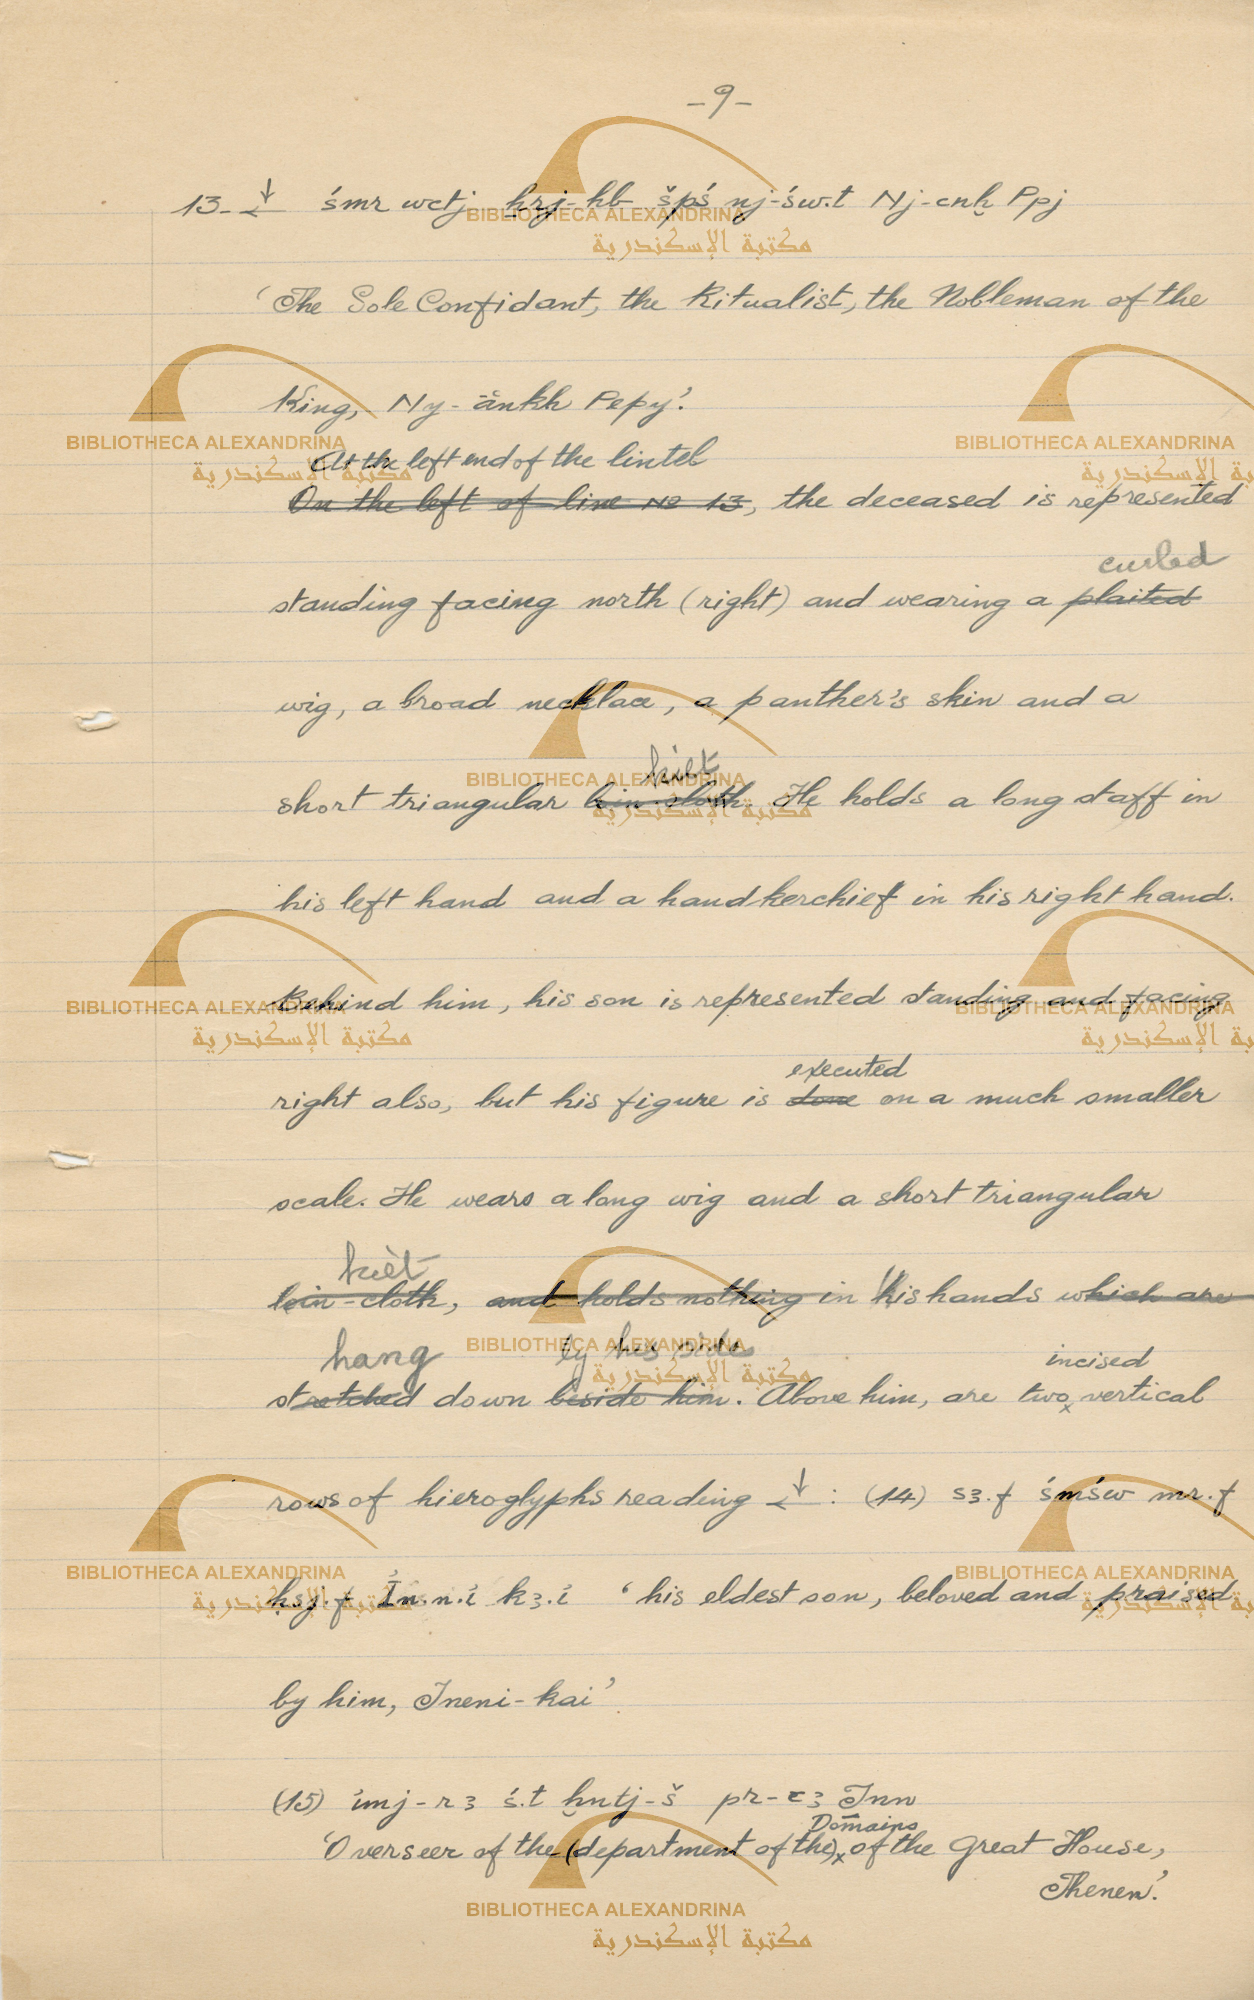 -9-
13- ↓← śmr wctj ẖrj-ḥb špś nj-św.t Nj-cnḫ Ppj
'The Sole Confidant, the Ritualist, the Nobleman of the
King, Ny-ānkh Pepy'.
At the left end of the lintel
On the left of line No 13, the deceased is represented
curled
standing facing north (right) and wearing a plaited
wig, a broad necklace, a panther's skin and a
kilt
short triangular loin-cloth. He holds a long staff in
his left hand and a handkerchief in his right hand.
Behind him, his son is represented standing and facing
executed
right also, but his figure is done on a much smaller
scale. He wears a long wig and a short triangular
kilt
loin-cloth, and holds nothing in his hands which are
hang by his side incised
stretched down beside him. Above him, are two x vertical
rows of hieroglyphs reading ↓← : (14) s3.f śmśw mr.f
ḥsj.f Ἰn.n.ἰ k3.ἰ 'his eldest son, beloved and praised
by him, Ineni-kai'
(15) ἰmj-r3 ś.t ḫntj-š pr-c3 Ṯnn
Domains
'Overseer of the (department of the) x of the Great House,
Thenen'.
BIBLIOTHECA ALEXANDRINA
مكتبة الإسكندرية